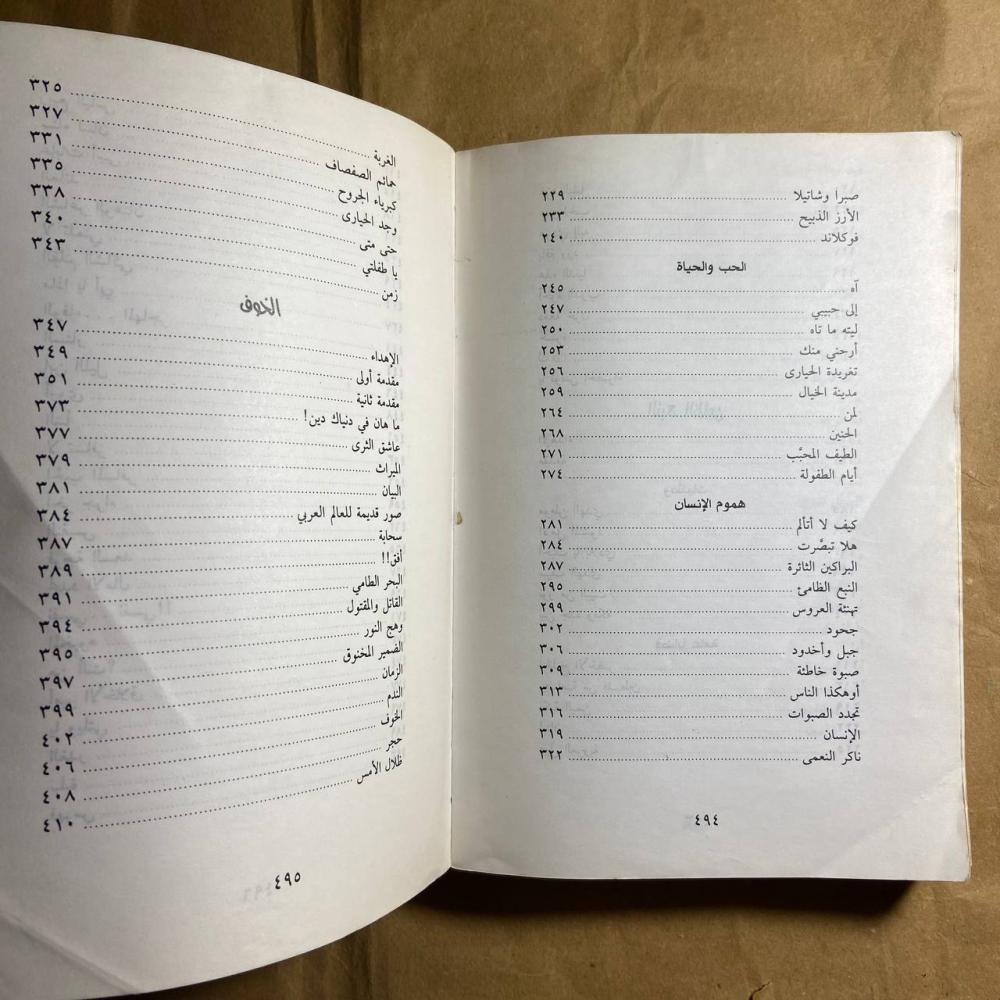 صبرا وشاتيلا ٢٢٩
الأرز الذبيح ٢٣٣
فوكلاند ٢٤٠
الحب والحياة
آه ٢٤٥
إلى حبيبي ٢٤٧
ليته ما تاه ٢٥٠
أرحني منك ٢٥٣
تغريدة الحيارى ٢٥٦
مدينة الخيال ٢٥٩
لمن ٢٦٤
الحنين ٢٦٨
الطيف المحبَّب ٢٧١
أيام الطفولة ٢٧٤
هموم الإنسان
كيف لا أتألم ٢٨١
هلا تبصَّرت ٢٨٤
البراكين الثائرة ٢٨٧
النبع الظامئ ٢٩٥
تهنئة العروس ٢٩٩
جحود ٣٠٢
جبل وأخدود ٣٠٦
صبوة خاطئة ٣٠٩
أوهكذا الناس ٣١٣
تجدد الصبوات ٣١٦
الإنسان ٣١٩
ناكر النعمى ٣٢٢
٤٩٤
الغربة ٣٢٥
حمائم الصفصاف ٣٢٧
كبرياء الجروح ٣٣١
وجد الحيارى ٣٣٥
حتى متى ٣٣٨
يا طفلتي ٣٤٠
زمن ٣٤٣
الخوف
الإهداء ٣٤٧
مقدمة أولى ٣٤٩
مقدمة ثانية ٣٥١
ما هان في دنياك دين! ٣٧٣
عاشق الثرى ٣٧٧
الميراث ٣٧٩
البيان ٣٨١
صور قديمة للعالم العربي ٣٨٤
سحابة ٣٨٧
أفق!! ٣٨٩
البحر الطامي ٣٩١
القاتل والمقتول ٣٩٤
وهج النور ٣٩٥
الضمير المخنوق ٣٩٧
الزمان ٣٩٩
الندم ٤٠٢
الخوف ٤٠٦
حجر ٤٠٨
ظلال الأمس ٤١٠
٤٩٥